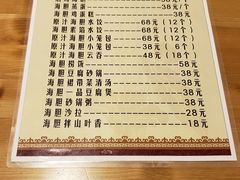 海胆蒸蛋——38元
海胆鸡蛋糕——38元
原汁海胆水饺——68元(12个)
海胆素馅水饺——68元(12个)
原汁海胆小笼包——68元(12个)
原汁海胆小笼包——38元(6个)
原汁海胆云吞——48元(18个)
海胆捞饭——58元
海胆豆腐砂锅——38元
海胆裙带菜清汤——38元
海胆一品豆腐煲——38元
海胆砂锅粥——38元
海胆沙拉——28元
海胆拌山叶香——18元